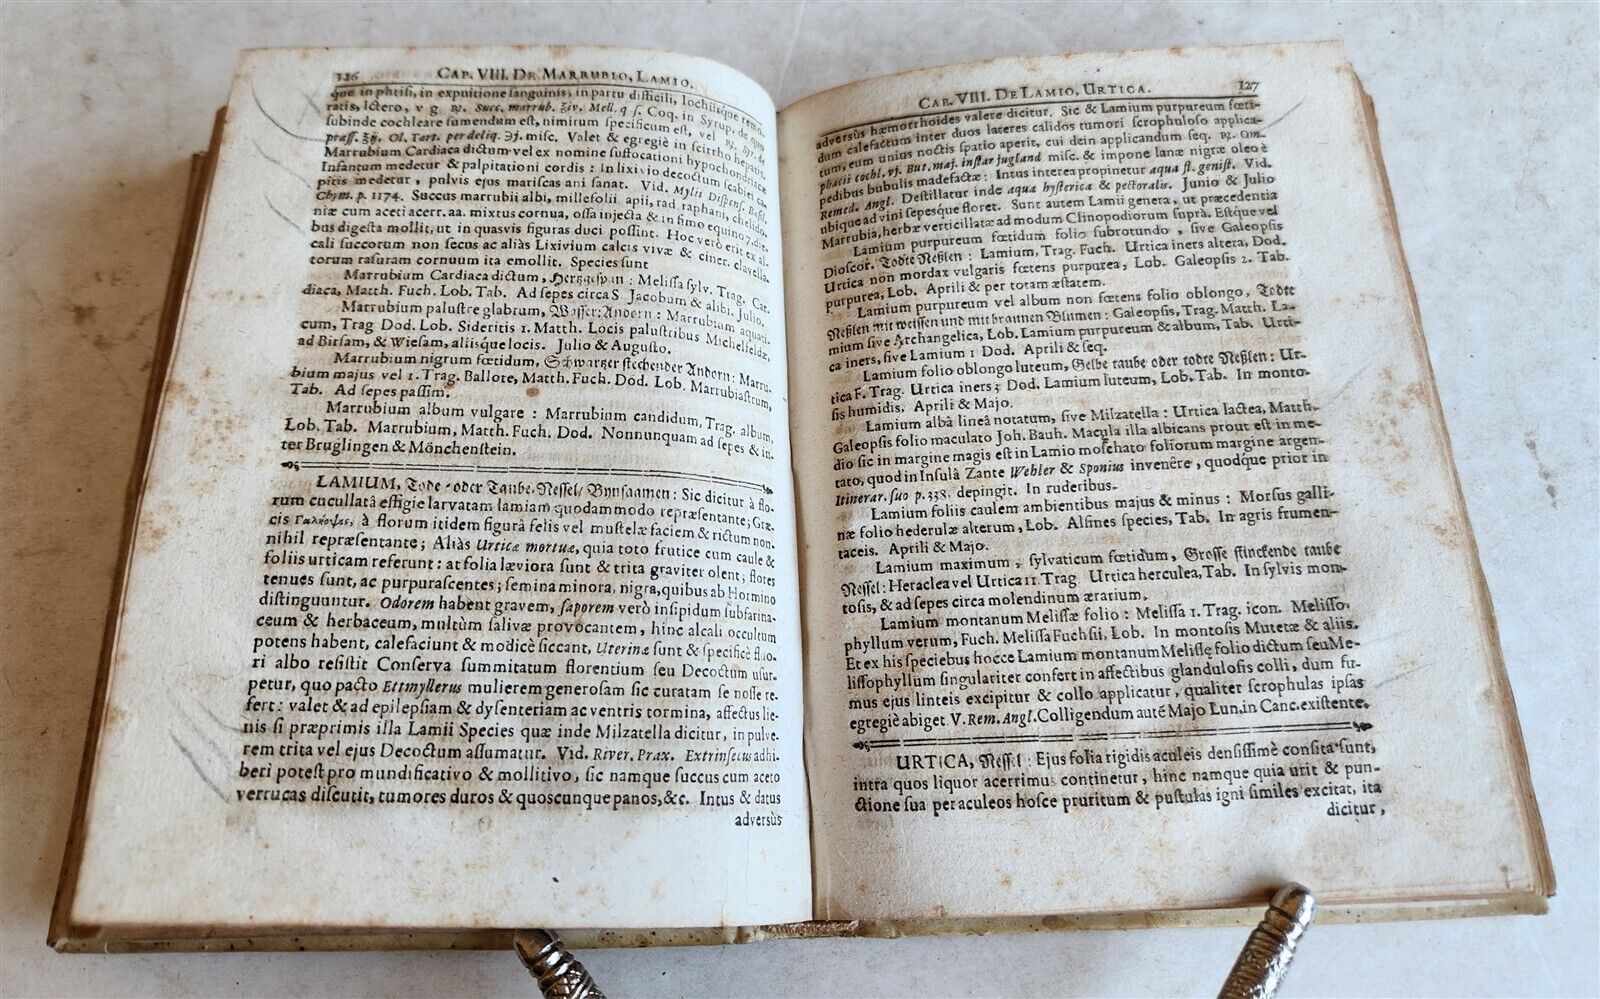 126 CAP. VIII. DE MARRUBIO, LAMIO.
que in phtisi, in expuitione sanguinis, in partu difficili, lochiisque remo-
ratis, Ictero, v g ℞. Succ. marrub. ℥iv. Mell. q s. Coq. in Syrup. de quo
subinde cochleare sumendum est, nimirum specificum est, vel ℞. Syr. de
prass. ℥ij. Ol. Tart. per deliq. ℈j. misc. Valet & egregiè in scirrho hepatis.
Marrubium Cardiaca dictum vel ex nomine suffocationi hypochondriacæ
Infantum medetur & palpitationi cordis : In lixivio decoctum scabiei ca-
pitis medetur, pulvis ejus mariscas ani sanat. Vid. Mylii Dispens. Basil.
Chym. p. 1174. Succus marrubii albi, millefolii apii, rad. raphani, chelido-
niæ cum aceti acerr. aa. mixtus cornua, ossa injecta & in fimo equino 7. die-
bus digesta mollit, ut in quasvis figuras duci possint. Hoc verò etiē ex al-
cali succorum non secus ac aliàs Lixivium calcis vivæ & ciner. clavella-
torum rasuram cornuum ita emollit. Species sunt
Marrubium Cardiaca dictum, Hertzgespan : Melissa sylv. Trag. Car-
diaca, Matth. Fuch. Lob. Tab. Ad sepes circa S Jacobum & alibi. Julio.
Marrubium palustre glabrum, Wasser-Andorn : Marrubium aquati-
cum, Trag Dod. Lob. Sideritis 1. Matth. Locis palustribus Michelfeldæ,
ad Birsam, & Wiesam, aliisque locis. Julio & Augusto.
Marrubium nigrum fœtidum, Schwartzer stechender Andorn : Marru-
bium majus vel 1. Trag. Ballote, Matth. Fuch. Dod. Lob. Marrubiastrum,
Tab. Ad sepes passim.
Marrubium album vulgare : Marrubium candidum, Trag. album,
Lob. Tab. Marrubium, Matth. Fuch. Dod. Nonnunquam ad sepes & in-
ter Bruglingen & Mönchenstein.
LAMIUM, Tode- oder Taube-Nessel/ Bynsaamen : Sic dicitur à flo-
rum cucullatâ effigie larvatam lamiam quodammodo repræsentante; Græ-
cis Γαλιοψις, à florum itidem figurâ felis vel mustelæ faciem & rictum non-
nihil repræsentante; Aliàs Urticæ mortuæ, quia toto frutice cum caule &
foliis urticam referunt : at folia læviora sunt & trita graviter olent; flores
tenues sunt, ac purpurascentes; semina minora, nigra, quibus ab Hormino
distinguuntur. Odorem habent gravem, saporem verò insipidum subfarina-
ceum & herbaceum, multùm salivæ provocantem, hinc alcali occultum
potens habent, calefaciunt & modicè siccant, Uterina sunt & specificè fluo-
ri albo resistit Conserva summitatum florentium seu Decoctum usur-
petur, quo pacto Ettmyllerus mulierem generosam sic curatam se nosse re-
fert : valet & ad epilepsiam & dysenteriam ac ventris tormina, affectus lie-
nis si præprimis illa Lamii Species quæ inde Milzatella dicitur, in pulve-
rem trita vel ejus Decoctum assumatur. Vid. River. Prax. Extrinsecus adhi-
beri potest pro mundificativo & mollitivo, sic namque succus cum aceto
verrucas discutit, tumores duros & quoscunque panos, &c. Intus & datus
adversùs
CAP. VIII. DE LAMIO, URTICA. 127
adversùs hæmorrhoides valere dicitur. Sic & Lamium purpureum fœti-
dum calefactum inter duos lateres calidos tumori scrophuloso applica-
tum, eum unius noctis spatio aperit, cui dein applicandum seq. ℞. Om-
phacii cochl. vj. But. maj. instar jugland misc. & impone lanæ nigræ oleo è
pedibus bubulis madefactæ : Intus interea propinetur aqua fl. genist. Vid.
Remed. Angl. Destillatur inde aqua hysterica & pectoralis. Junio & Julio
ubique ad vini sepesque floret. Sunt autem Lamii genera, ut præcedentia
Marrubia, herbæ verticillatæ ad modum Clinopodiorum suprà. Estque vel
Lamium purpureum fœtidum folio subrotundo, sive Galeopsis
Dioscor. Todte Neßlen : Lamium, Trag. Fuch. Urtica iners altera, Dod.
Urtica non mordax vulgaris fœtens purpurea, Lob. Galeopsis 2. Tab.
purpurea, Lob. Aprili & per totam æstatem.
Lamium purpureum vel album non fœtens folio oblongo, Todte
Neßlen mit weissen und mit braunen Blumen : Galeopsis, Trag. Matth. La-
mium sive Archangelica, Lob. Lamium purpureum & album, Tab. Urti-
ca iners, sive Lamium 1 Dod. Aprili & seq.
Lamium folio oblongo luteum, Gelbe taube oder todte Neßlen : Ur-
tica F. Trag. Urtica iners 3 Dod. Lamium luteum, Lob. Tab. In monto-
sis humidis. Aprili & Majo.
Lamium albâ lineâ notatum, sive Milzatella : Urtica lactea, Matth.
Galeopsis folio maculato Joh. Bauh. Macula illa albicans prout est in me-
dio sic in margine magis est in Lamio moschato foliorum margine argen-
tato, quod in Insulâ Zante Wehler & Sponius invenêre, quodque prior in
Itinerar. suo p. 338. depingit. In ruderibus.
Lamium foliis caulem ambientibus majus & minus : Morsus galli-
næ folio hederulæ alterum, Lob. Alsines species, Tab. In agris frumen-
taceis. Aprili & Majo.
Lamium maximum, sylvaticum fœtidum, Grosse stinckende taube
Nessel : Heraclea vel Urtica 11 Trag Urtica herculea, Tab. In sylvis mon-
tosis, & ad sepes circa molendinum ærarium.
Lamium montanum Melissæ folio : Melissa 1. Trag. icon. Melisso-
phyllum verum, Fuch. Melissa Fuchsii, Lob. In montosis Mutetæ & aliis.
Et ex his speciebus hocce Lamium montanum Melissę folio dictum seu Me-
lissophyllum singulariter confert in affectibus glandulosis colli, dum fu-
mus ejus linteis excipitur & collo applicatur, qualiter scrophulas ipsas
egregiè abiget V. Rem. Angl. Colligendum autē Majo Lun. in Canc. existente.
URTICA, Nessel : Ejus folia rigidis aculeis densissimè consita sunt,
intra quos liquor acerrimus continetur, hinc namque quia urit & pun-
ctione sua per aculeos hosce pruritum & pustulas igni similes excitat, ita
dicitur,